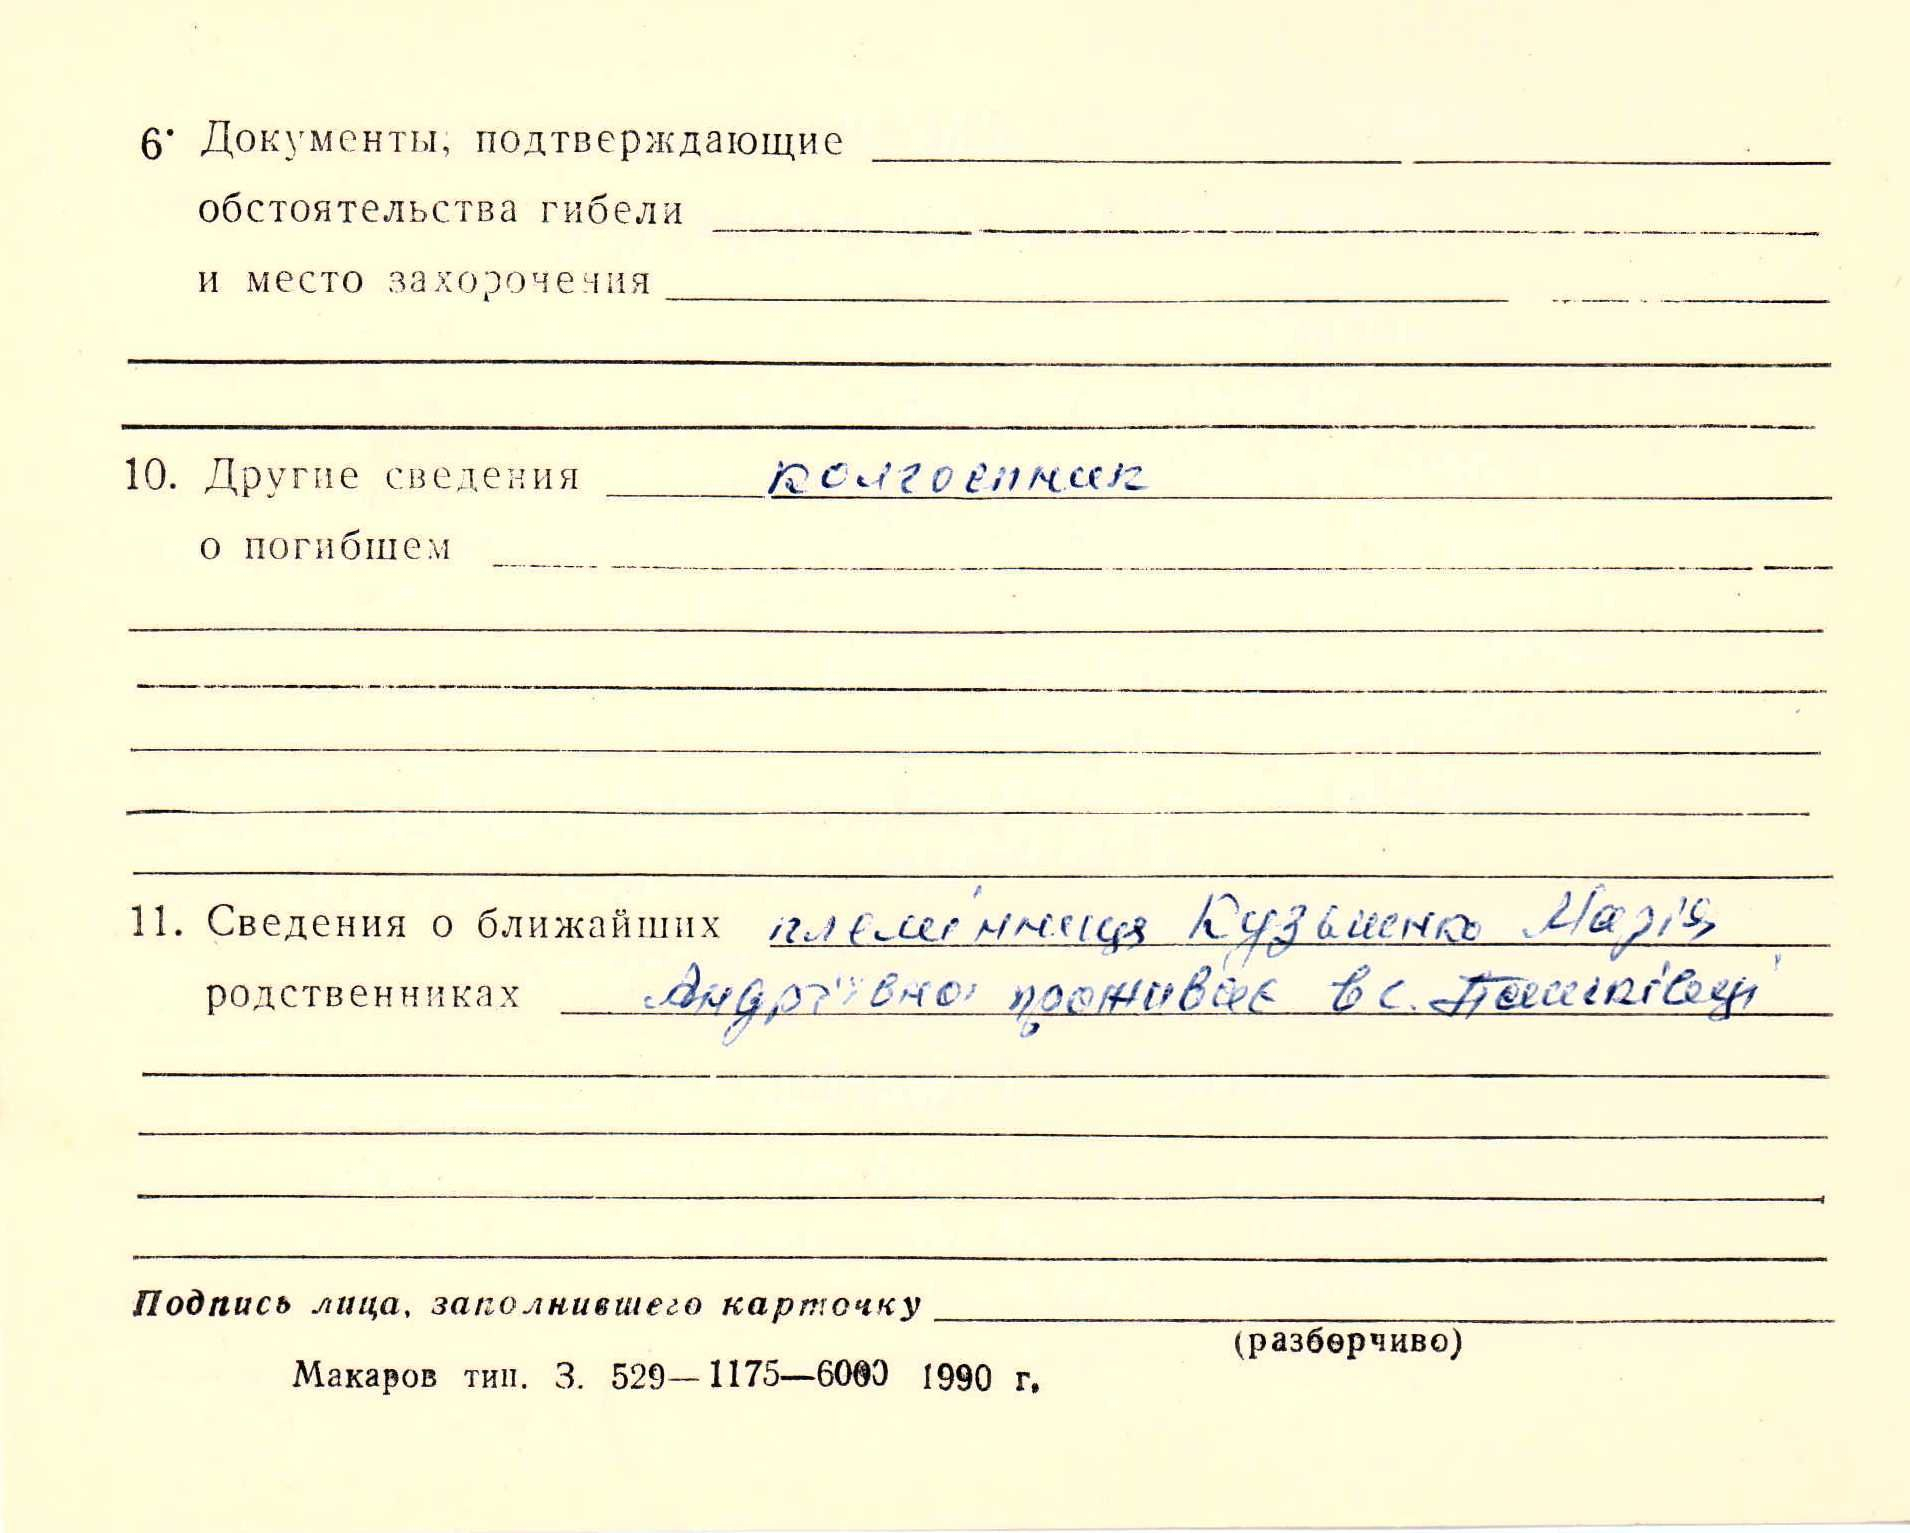 6. Документы, подтверждающие
обстоятельства гибели
и место захорочения
10. Другие сведения колгоспник
о погибшем
11. Сведения о ближайших племінниця Кузьменко Марія
родственниках Андріївна проживає в с. Пашківці
Подпись лица, заполнившего карточку
(разборчиво)
Макаров тип. З. 529—1175—6000 1990 г.